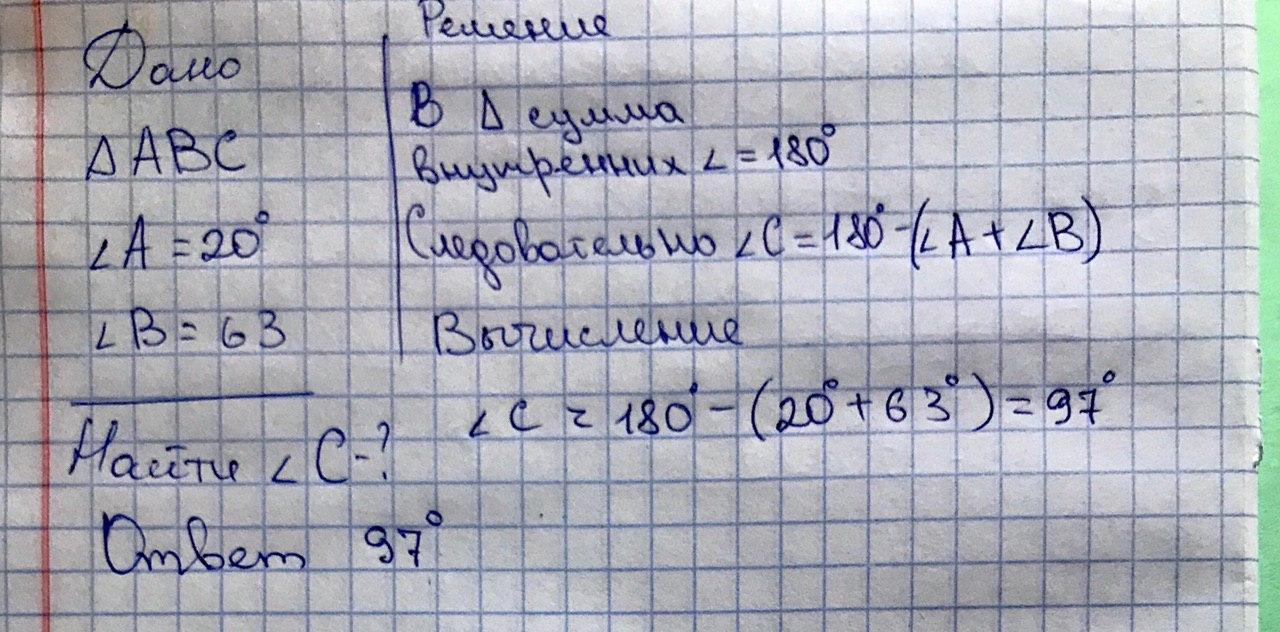 Дано
△ABC
∠A = 20°
∠B = 63
Найти ∠C-?
Решение
В △ сумма
внутренних ∠ = 180°
Следовательно ∠C = 180° - (∠A + ∠B)
Вычисление
∠C = 180° - (20° + 63°) = 97°
Ответ 97°